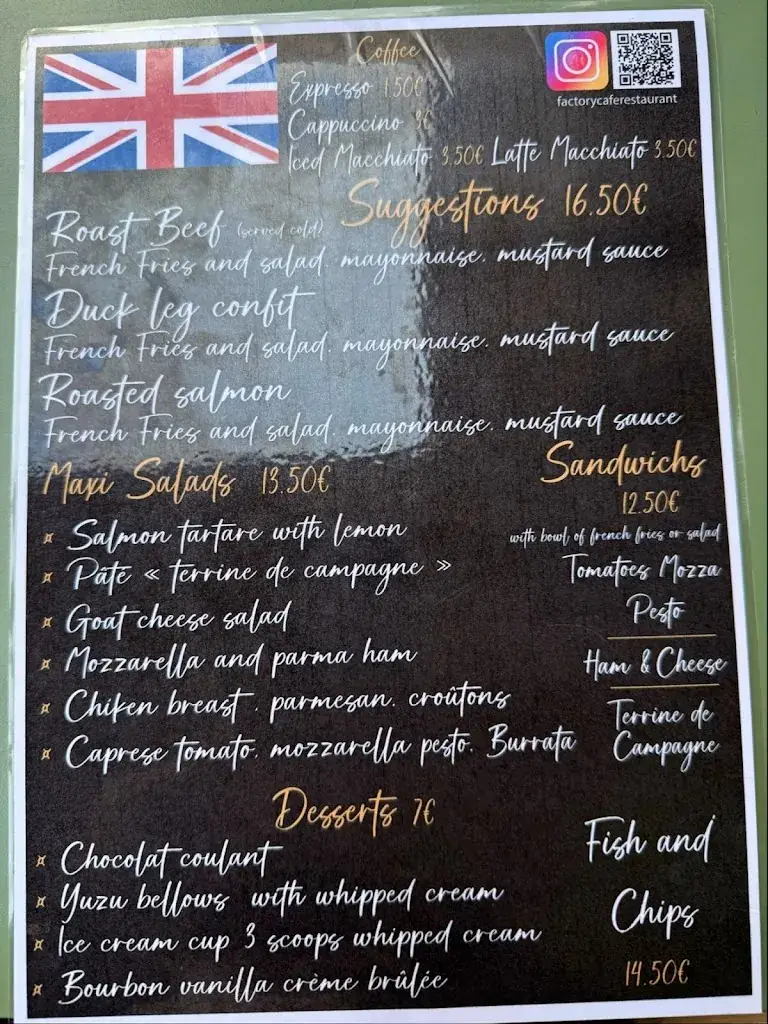 Coffee
Expresso 1.50€
Cappuccino 3€
Iced Macchiato 3.50€ Latte Macchiato 3.50€
factorycaferestaurant
Suggestions 16.50€
Roast Beef (served cold)
French Fries and salad, mayonnaise, mustard sauce
Duck leg confit
French Fries and salad, mayonnaise, mustard sauce
Roasted salmon
French Fries and salad, mayonnaise, mustard sauce
Maxi Salads 13.50€
¤ Salmon tartare with lemon
¤ Pâte « terrine de campagne »
¤ Goat cheese salad
¤ Mozzarella and parma ham
¤ Chiken breast, parmesan, croûtons
¤ Caprese tomato, mozzarella pesto, Burrata
Sandwichs
12.50€
with bowl of french fries or salad
Tomatoes Mozza
Pesto
Ham & Cheese
Terrine de
Campagne
Desserts 7€
¤ Chocolat coulant
¤ Yuzu bellows with whipped cream
¤ Ice cream cup 3 scoops whipped cream
¤ Bourbon vanilla crème brûlée
Fish and
Chips
14.50€